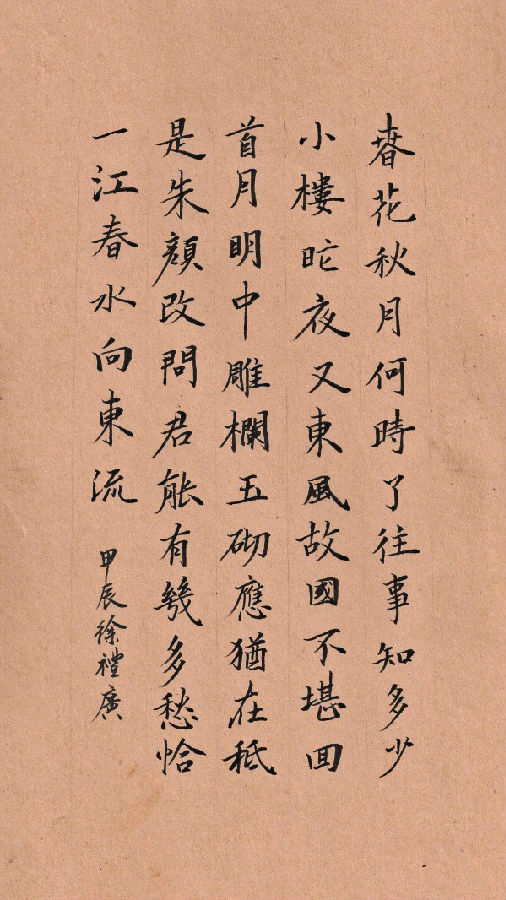 春花秋月何時了往事知多少
小樓昨夜又東風故國不堪回
首月明中雕欄玉砌應猶在秖
是朱顏改問君能有幾多愁恰
一江春水向東流
甲辰徐禮廣